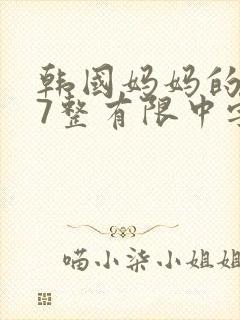 韩國妈妈的
7整有限中字
喵小柒小姐姐